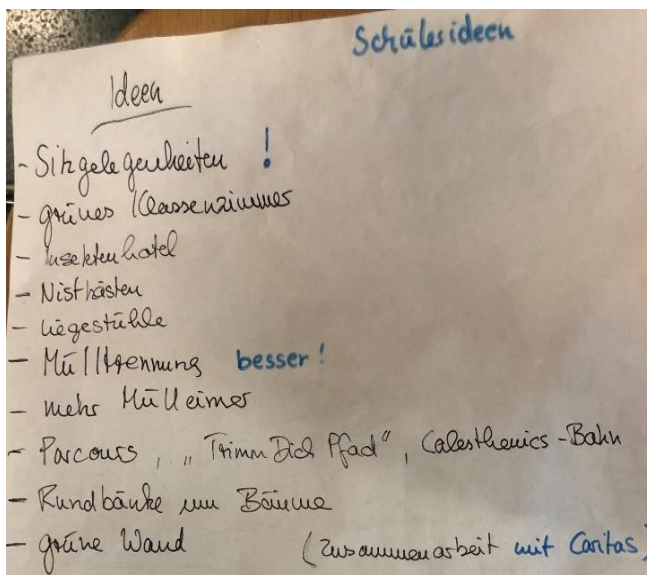 Schülerideen
Ideen
- Sitzgelegenheiten !
- grünes Klassenzimmer
- Insektenhotel
- Nistkästen
- Liegestühle
- Mülltrennung besser!
- mehr Mülleimer
- Parcours, „Trimm Dich Pfad“, Calesthenics-Bahn
- Rundbänke um Bäume
- grüne Wand (Zusammenarbeit mit Caritas)